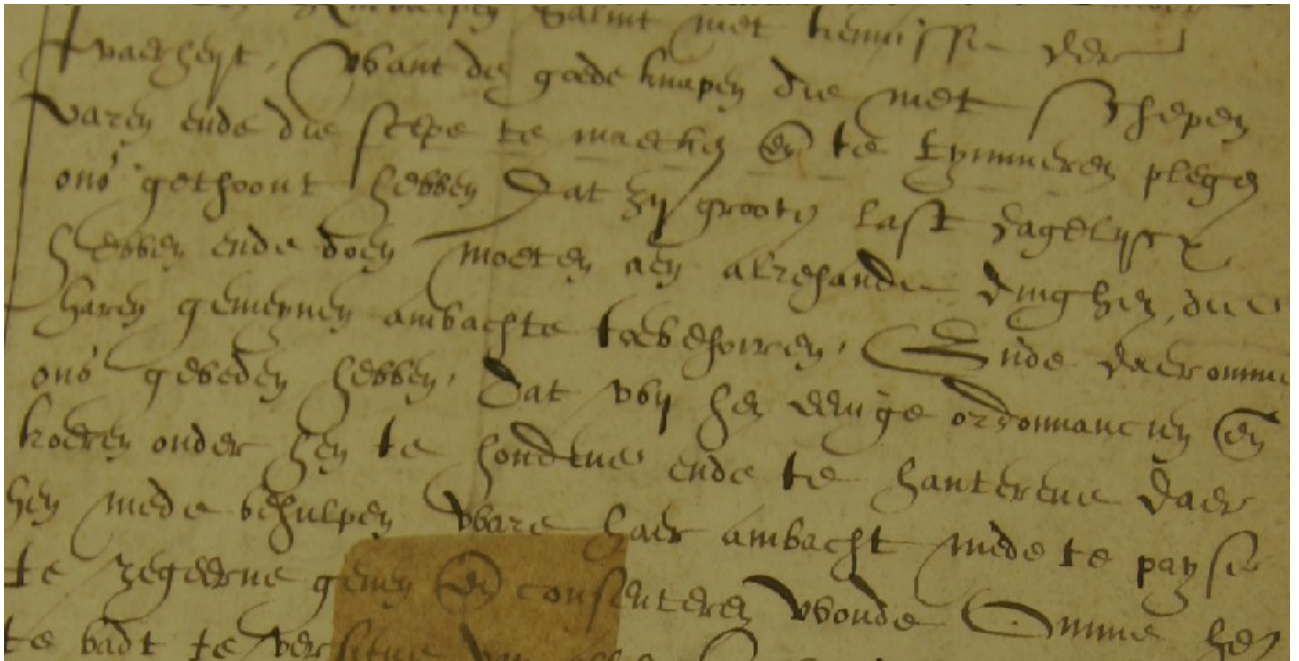 Antwerpen Saluyt met kennisse der
waerheyt. Want dz goede knapen die met schepen
varen ende die scepe te maeken en te tymmeren plegen
ons gethoont hebben dat zy grooten last dagelycx
hebben ende doen moeten aen alrehande dinghen, die
haren gemeynen ambachte toebehoiren. Ende daeromme
ons gebeden hebben, dat wy hen eenige ordonnancien en
koeren onder hen te houdene ende te hanterene daer
hen mede behulpen ware haer ambacht mede te payse
te regeerne geven en consenteren wonde Omme hen
te badt te